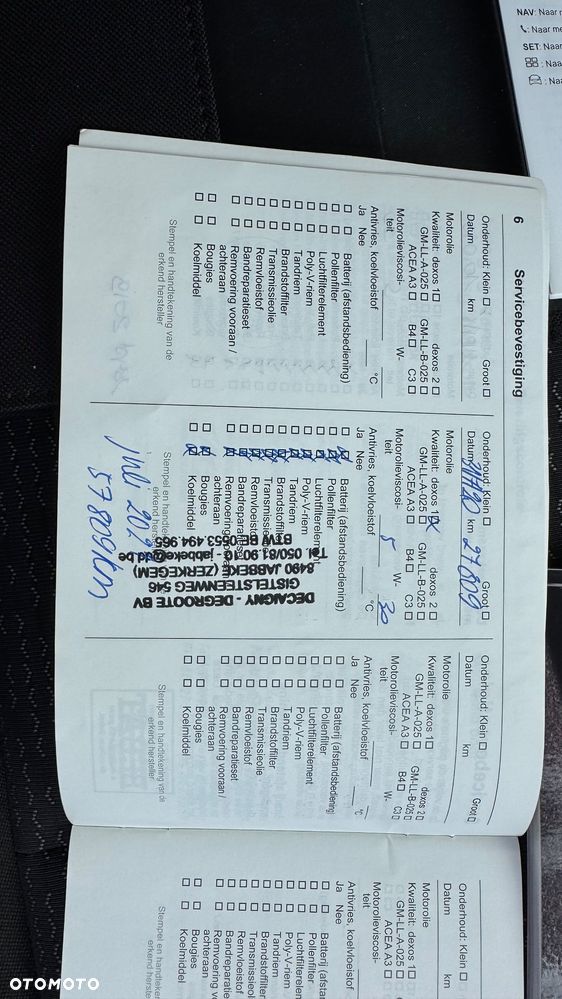 NAV: Naar
: Naar me
SET: Naar
: Naa
: Naa
6 Servicebevestiging
Onderhoud: Klein ☐ Groot ☐
Datum km
Motorolie
Kwaliteit: dexos 1 ☐ dexos 2 ☐
GM-LL-A-025 ☐ GM-LL-B-025 ☐
ACEA A3 ☐ B4 ☐ C3 ☐
Motorolieviscosi- W-
teit
Antivries, koelvloeistof °C
Ja Nee
☐ ☐ Batterij (afstandsbediening)
☐ ☐ Pollenfilter
☐ ☐ Luchtfilterelement
☐ ☐ Poly-V-riem
☐ ☐ Tandriem
☐ ☐ Brandstoffilter
☐ ☐ Transmissieolie
☐ ☐ Remvloeistof
☐ ☐ Bandreparatieset
☐ ☐ Remvoering vooraan /
achteraan
☐ ☐ Bougies
☐ ☐ Koelmiddel
Stempel en handtekening van de
erkend hersteller
Onderhoud: Klein ☐ Groot ☐
Datum km 27809
Motorolie
Kwaliteit: dexos 1 ☒ dexos 2 ☐
GM-LL-A-025 ☐ GM-LL-B-025 ☐
ACEA A3 ☐ B4 ☐ C3 ☐
Motorolieviscosi- 5 W- 30
teit
Antivries, koelvloeistof °C
Ja Nee
Batterij (afstandsbediening)
Pollenfilter
Luchtfilterelement
Poly-V-riem
Tandriem
Brandstoffilter
Transmissieolie
Remvloeistof
Bandreparatieset
Remvoering
achteraan
Bougies
Koelmiddel
DECAIGNY - DEGROOTE BV
GISTELSTEENWEG 546
8490 JABBEKE (ZERKEGEM)
Tel. 050/81.90.16 - jabbeke@ad.be
BTW BE 0653.494.965
Stempel en handteke
erkend herst
57809 km
Onderhoud: Klein ☐ Groot ☐
Datum km
Motorolie
Kwaliteit: dexos 1 ☐ dexos 2 ☐
GM-LL-A-025 ☐ GM-LL-B-025 ☐
ACEA A3 ☐ B4 ☐ C3 ☐
Motorolieviscosi- W-
teit
Antivries, koelvloeistof °C
Ja Nee
☐ ☐ Batterij (afstandsbediening)
☐ ☐ Pollenfilter
☐ ☐ Luchtfilterelement
☐ ☐ Poly-V-riem
☐ ☐ Tandriem
☐ ☐ Brandstoffilter
☐ ☐ Transmissieolie
☐ ☐ Remvloeistof
☐ ☐ Bandreparatieset
☐ ☐ Remvoering vooraan /
achteraan
☐ ☐ Bougies
☐ ☐ Koelmiddel
Stempel en handtekening van de
erkend hersteller
Onderhoud: Klein ☐
Datum
Motorolie
Kwaliteit: dexos 1 ☐
GM-LL-A-025 ☐
ACEA A3 ☐
Motorolieviscosi-
teit
Antivries, koelvloeistof
Ja Nee
☐ ☐ Batterij (afstandsb
☐ ☐ Pollenfilter
☐ ☐ Luchtfilterelement
☐ ☐ Poly-V-riem
☐ ☐ Tandriem
☐ ☐ Brandstoffilter
☐ ☐ Transmissieolie
☐ ☐ Remvloeistof
☐ ☐ Bandreparatieset
☐ ☐ Remvoering voora
achteraan
☐ ☐ Bougies
☐ ☐ Koelmiddel
Stempel en handteken
erkend herstel
OTOMOTO